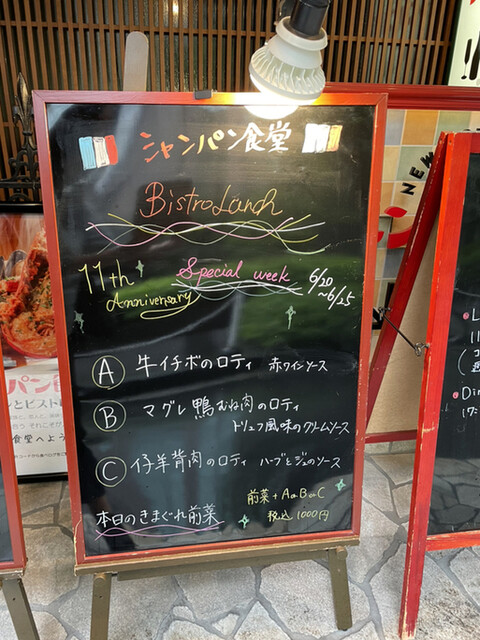 シャンパン食堂
Bistro Lunch
11th
Anniversary
Special week
6/20
~6/25
Ⓐ 牛イチボのロティ 赤ワインソース
Ⓑ マグレ鴨むね肉のロティ
トリュフ風味のクリームソース
Ⓒ 仔羊背肉のロティ ハーブとジュのソース
本日のきまぐれ前菜
前菜+AorBorC
税込1000円
NEW
パン
とビスト
食堂へよう
17: